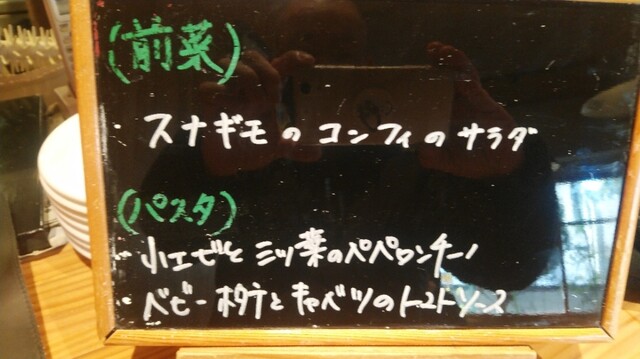 (前菜)
・スナギモのコンフィのサラダ
(パスタ)
・小エビと三ツ葉のペペロンチーノ
・ベビーホタテとキャベツのトマトソース